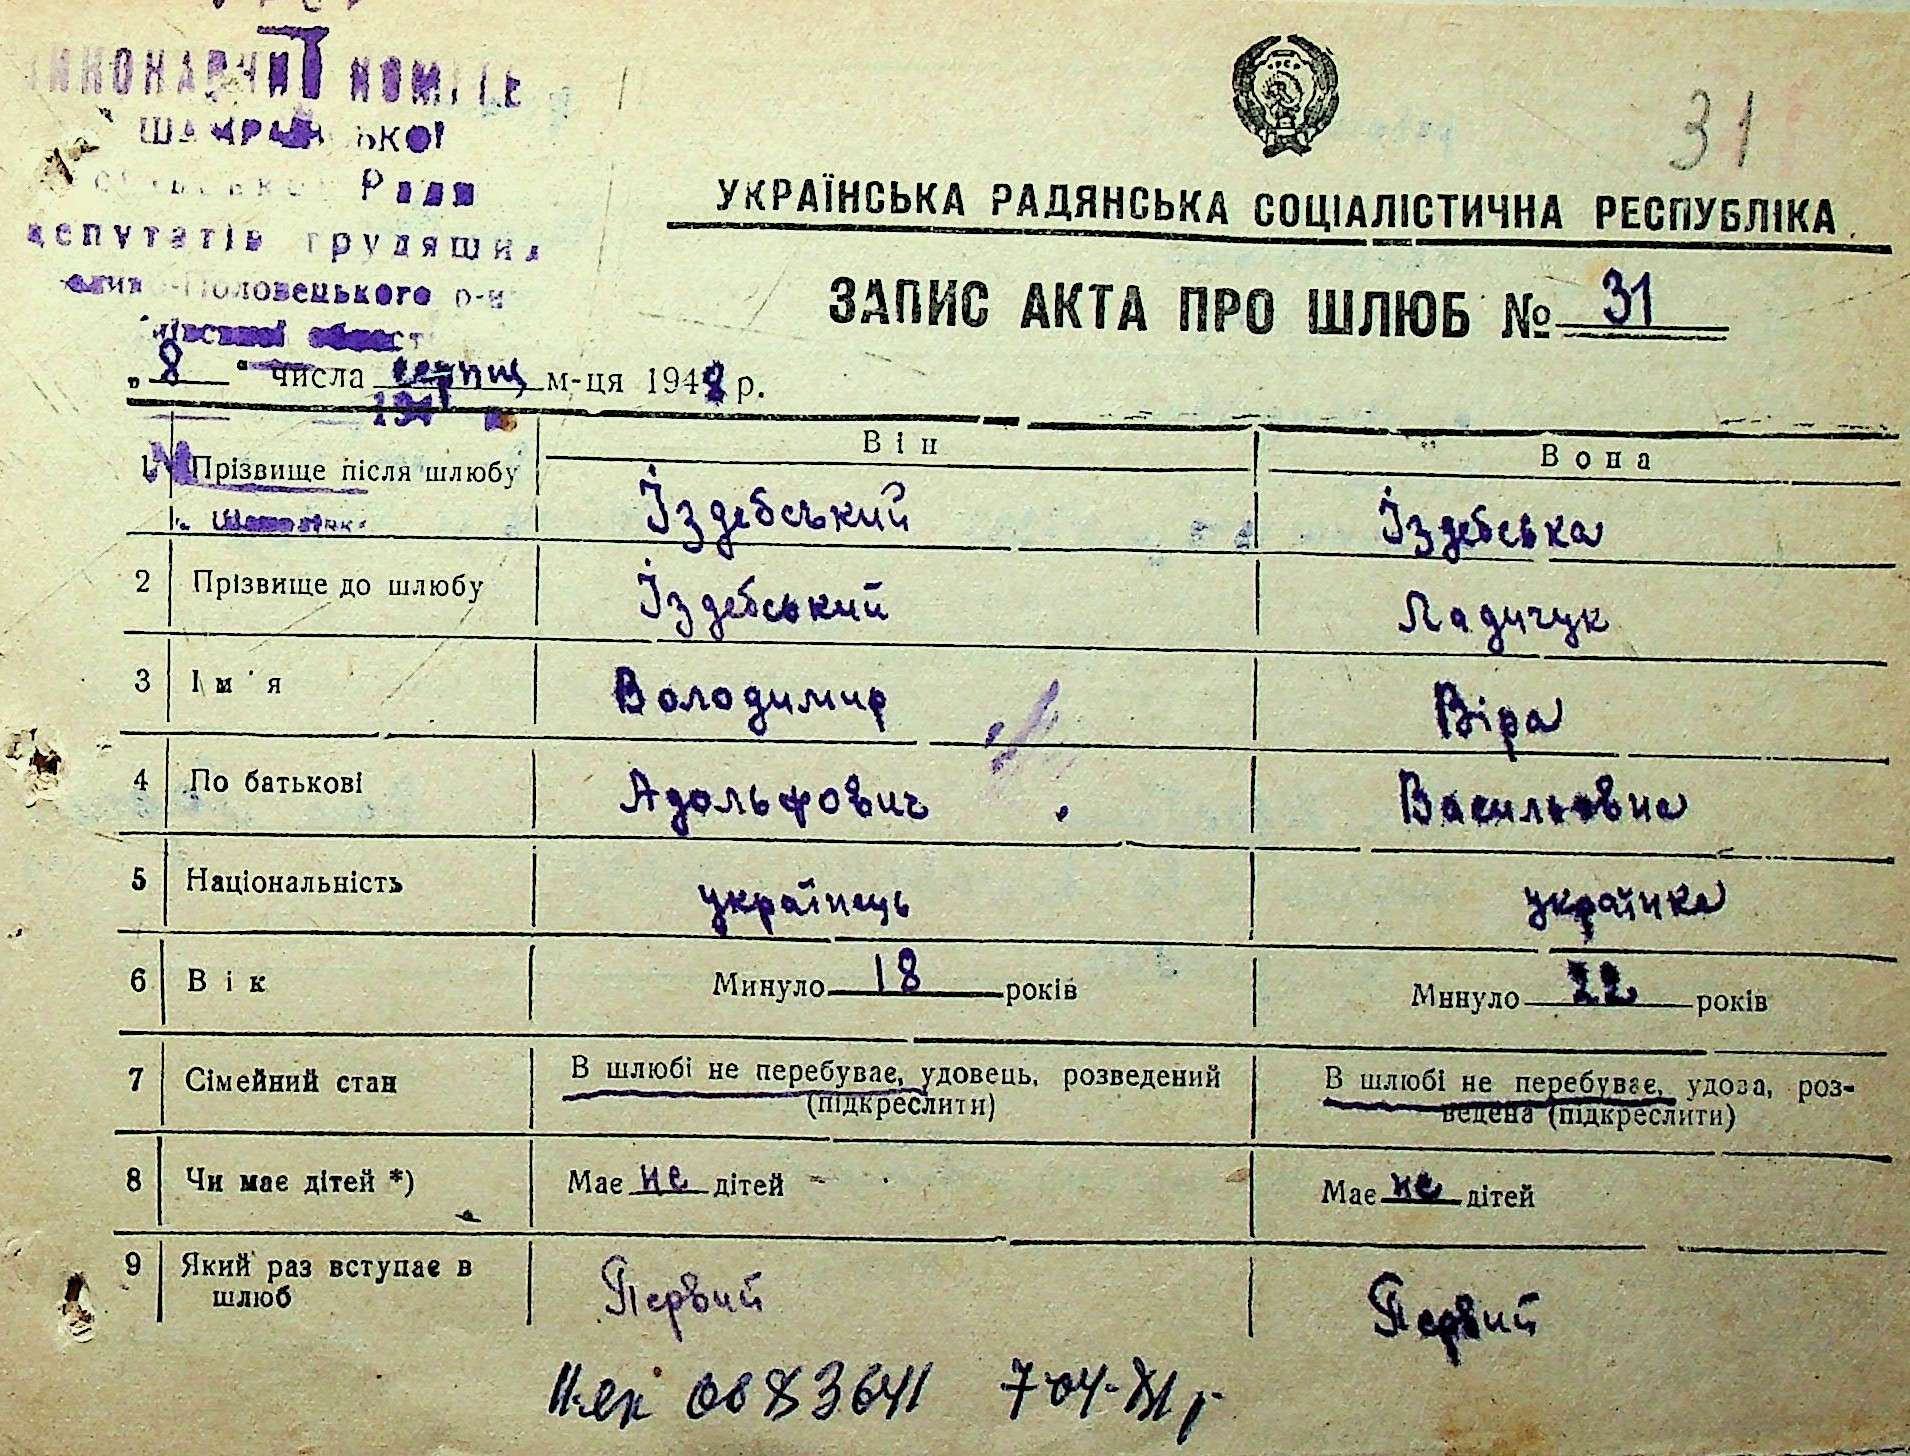 31
Ради
депутатів трудящих
УКРАЇНСЬКА РАДЯНСЬКА СОЦІАЛІСТИЧНА РЕСПУБЛІКА
ЗАПИС АКТА ПРО ШЛЮБ № 31
„ 8 " числа серпня м-ця 1948 р.
Він Вона
1 Прізвище після шлюбу Іздебський Іздебська
2 Прізвище до шлюбу Іздебський Ладичук
3 Ім'я Володимир Віра
4 По батькові Адольфович Васильовна
5 Національність українець українка
6 Вік Минуло 18 років Минуло 22 років
7 Сімейний стан В шлюбі не перебуває, удовець, розведений В шлюбі не перебуває, удова, роз-
(підкреслити) ведена (підкреслити)
8 Чи має дітей *) Має не дітей Має не дітей
9 Який раз вступає в Первий Первий
шлюб